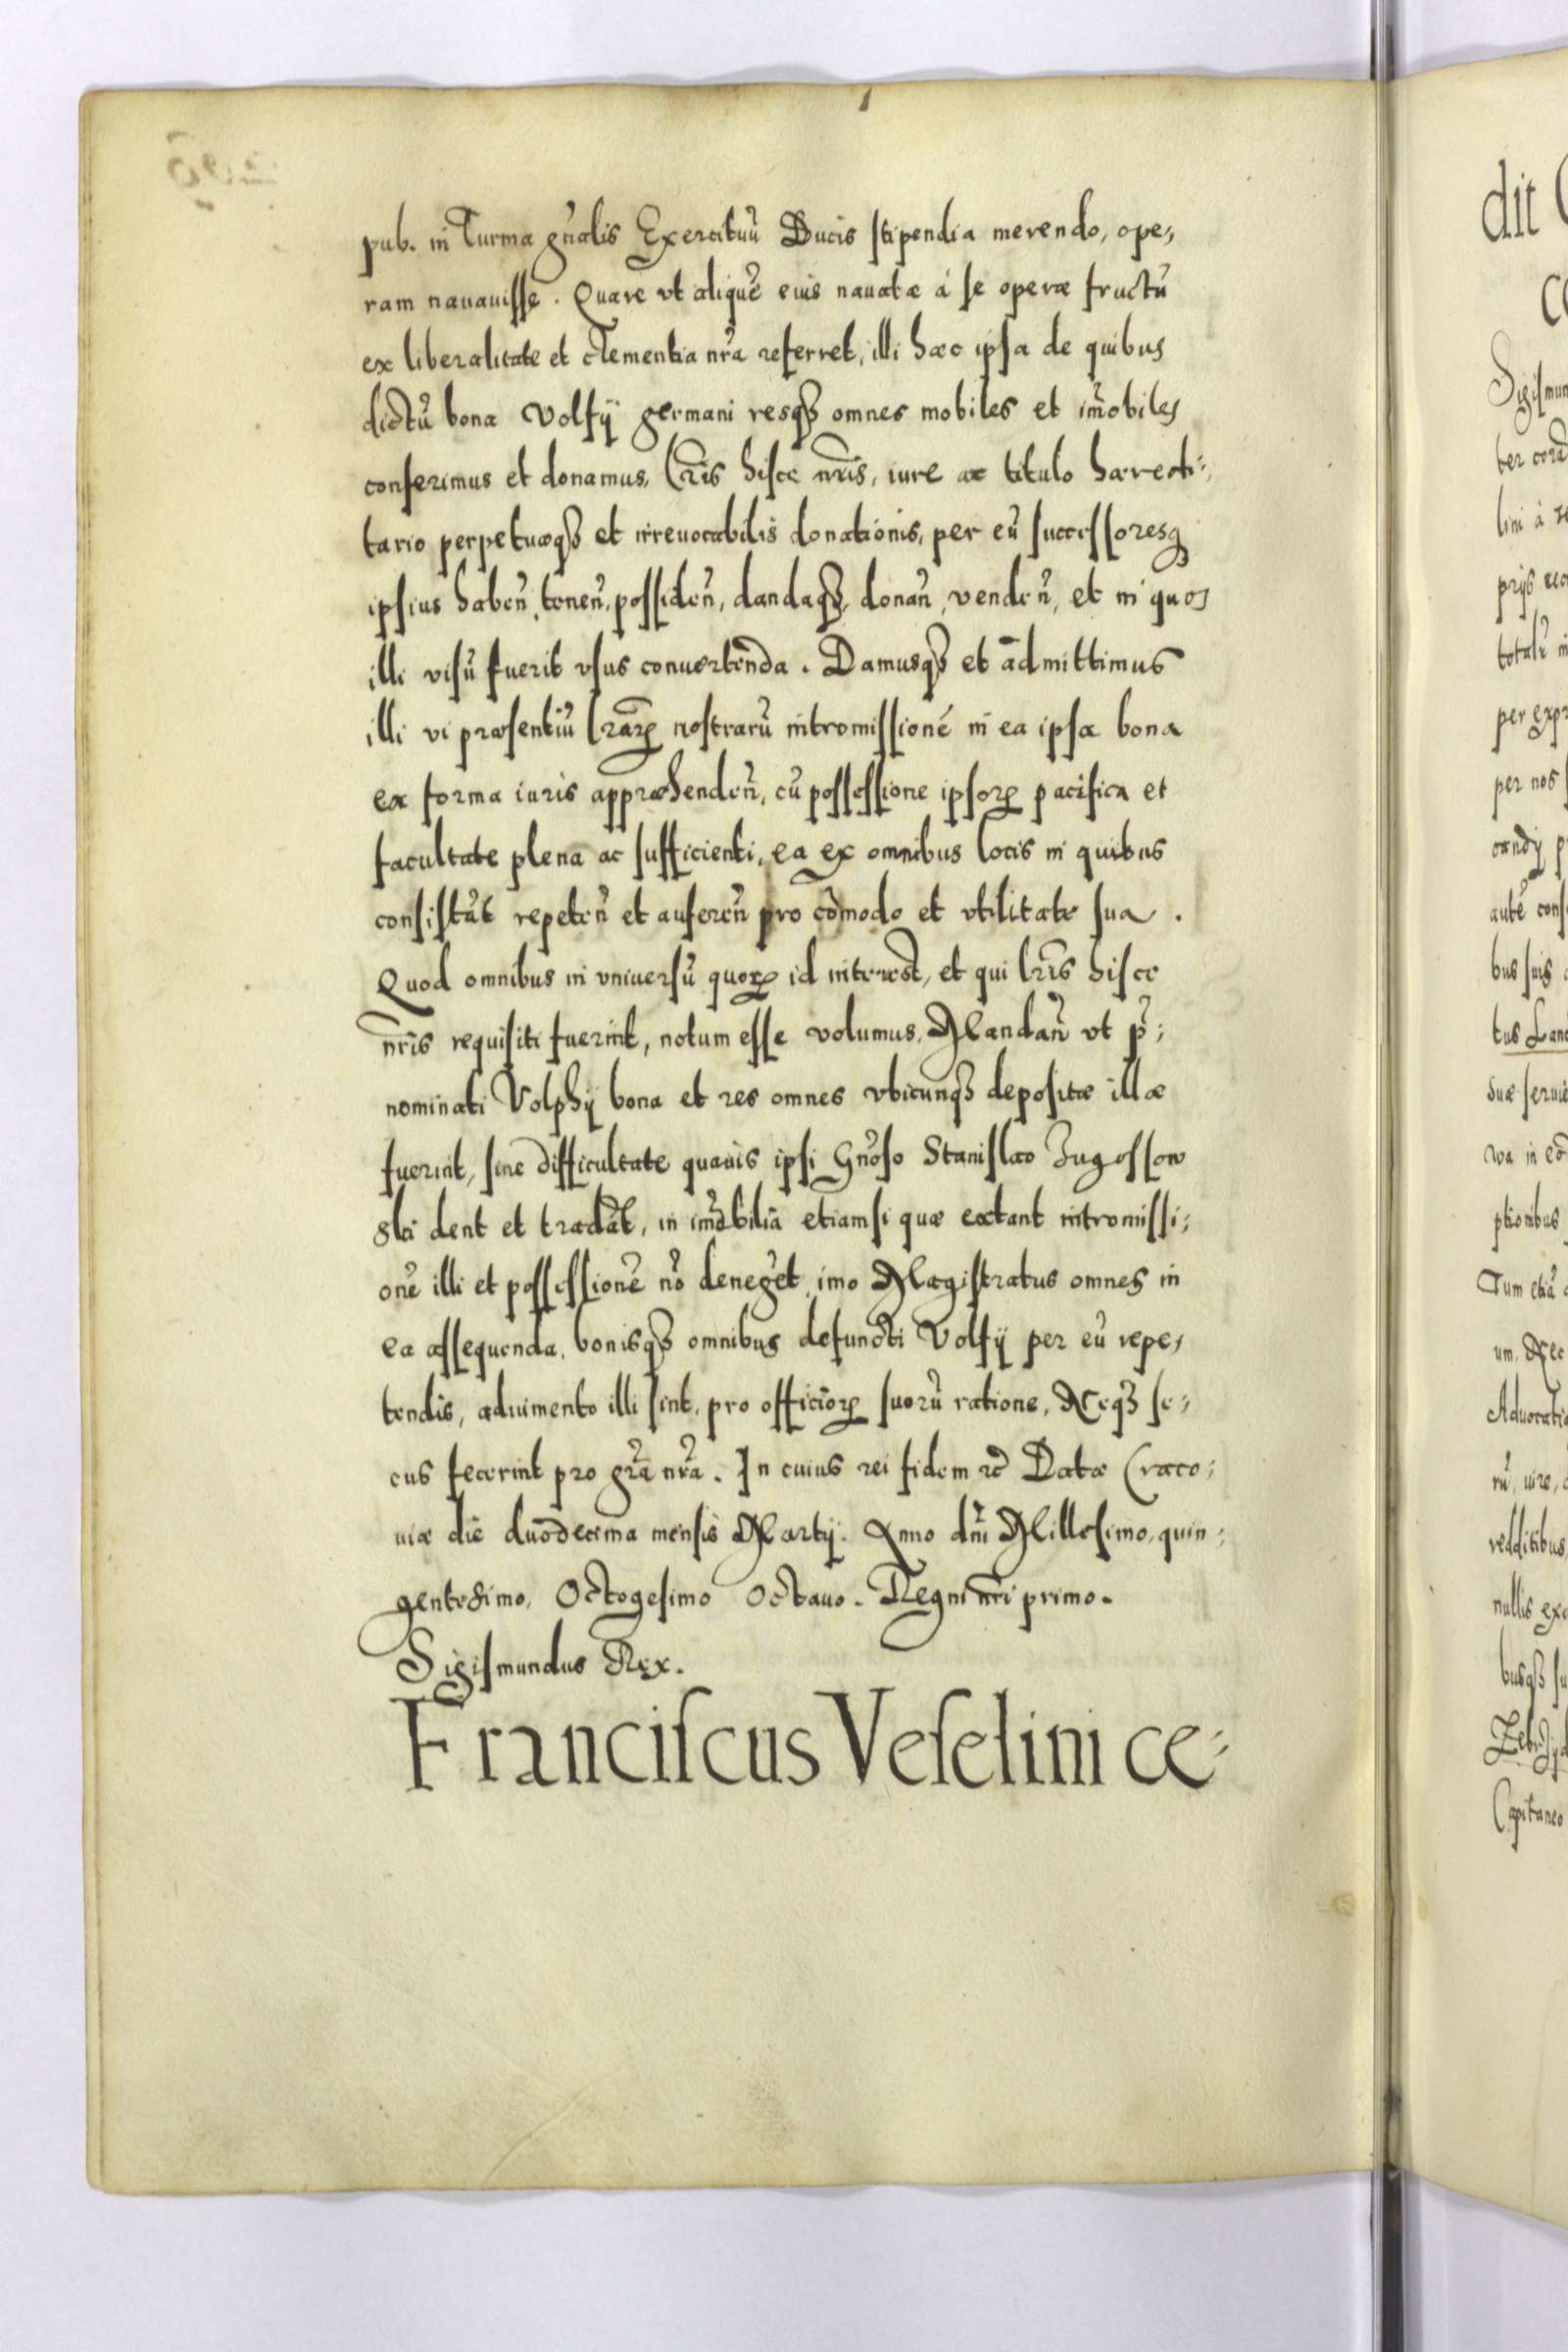 pub. in Turma gn̄alis Exercituū Ducis stipendia merendo, ope,,
ram nauauisse. Quare vt aliquē eius nauatæ à se operæ fructū
ex liberalitate et clementia nr̄a referret, illi hæc ipsa de quibus
dictū bona Volfÿ germani resqȝ omnes mobiles et im̄obiles
conferimus et donamus, Lr̄is hisce nr̄is, iure ac titulo hæredi-
tario perpetuæqȝ et irreuocabilis donationis, per eū successoresqȝ
ipsius haben̄, tenen̄, possiden̄, dandaqȝ, donan̄, venden̄, et in quos
illi visū fuerit vsus conuertenda. Damusqȝ et admittimus
illi vi præsentiū lr̄arꝝ nostrarū intromissionē in ea ipsa bona
ex forma iuris appræhenden̄, cū possessione ipsorꝝ pacifica et
facultate plena ac sufficienti, ea ex omnibus locis in quibus
consistūt repeten̄ et auferen̄ pro cōmodo et vtilitate sua.
Quod omnibus in vniuersū quorꝝ id interest, et qui lr̄is hisce
nr̄is requisiti fuerint, notum esse volumus, Mandan̄ vt p̄;
nominati Volphÿ bona et res omnes vbicunqȝ depositæ illæ
fuerint, sine difficultate quauis ipsi Gn̄oso Stanislao Jugossow
ski dent et tradāt, in im̄obilia etiamsi quæ extant intromissi;
onē illi et possessionē nō denegēt, imo Magistratus omnes in
ea assequenda, bonisqȝ omnibus defuncti Volfÿ per eū repe,
tendis, adiumento illi sint, pro officiorꝝ suorū ratione, Neqȝ se;
cus fecerint pro gr̄a nr̄a. In cuius rei fidem rc̄ Datæ Craco;
uiæ die duodecima mensis Martÿ. Anno dn̄i Millesimo, quin;
gentesimo, Octogesimo Octauo. Regni nr̄i primo.
Sigismundus Rex.
Franciscus Veselini ce-